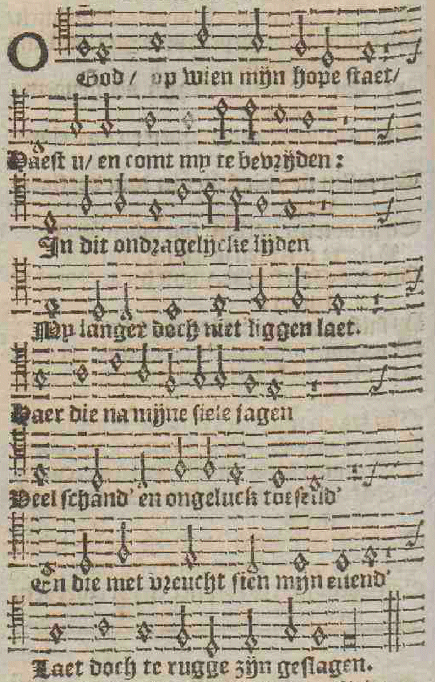 O God / op wien mijn hope staet /
Haest u / en comt my te bevrijden :
In dit ondragelijcke lijden
My langer doch niet liggen laet.
Haer die na mijne siele jagen
Veel schand' en ongeluck toesend'
En die met vreucht sien mijn ellend'
Laet doch te rugge zijn geslagen.